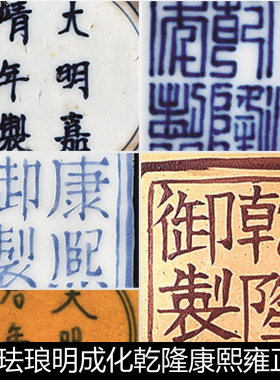 大明嘉
靖年製
乾隆
年製
康熙
御製
乾隆
御製
大明
年
珐琅明成化乾隆康熙雍正